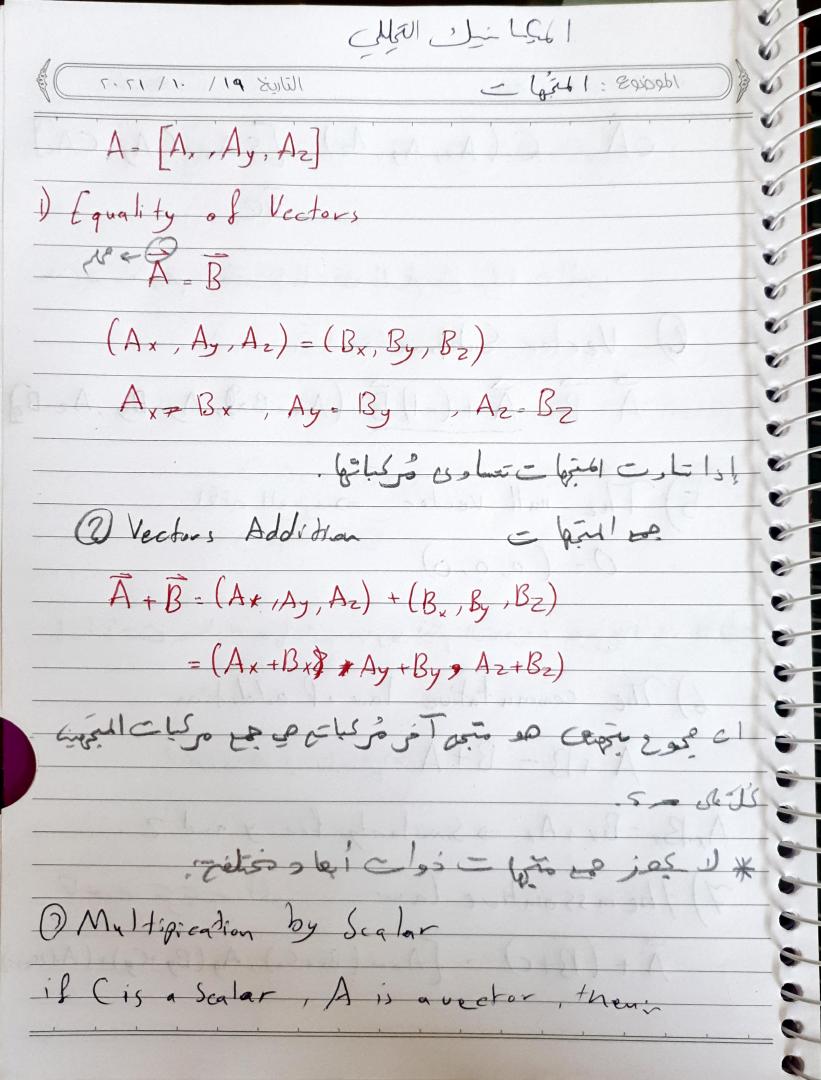 الميكانيك التحليلي
الموضوع : المتجهات التاريخ ١٩ / ١٠ / ٢٠٢١
A = [Ax, Ay, Az]
1) Equality of Vectors
A = B
(Ax, Ay, Az) = (Bx, By, Bz)
Ax = Bx , Ay = By , Az = Bz
إذا تساوت المتجهات تتساوى مُركباتها .
② Vectors Addition جمع المتجهات
A + B = (Ax, Ay, Az) + (Bx, By, Bz)
= (Ax + Bx , Ay + By , Az + Bz)
ان مجموع متجهين هو متجه آخر مُركباته هي جمع مركبات المتجهين
كُلٌ على
* لا يجوز جمع متجهات ذوات أبعاد مختلفة .
③ Multipication by Scalar
if C is a Scalar , A is a vector , then: